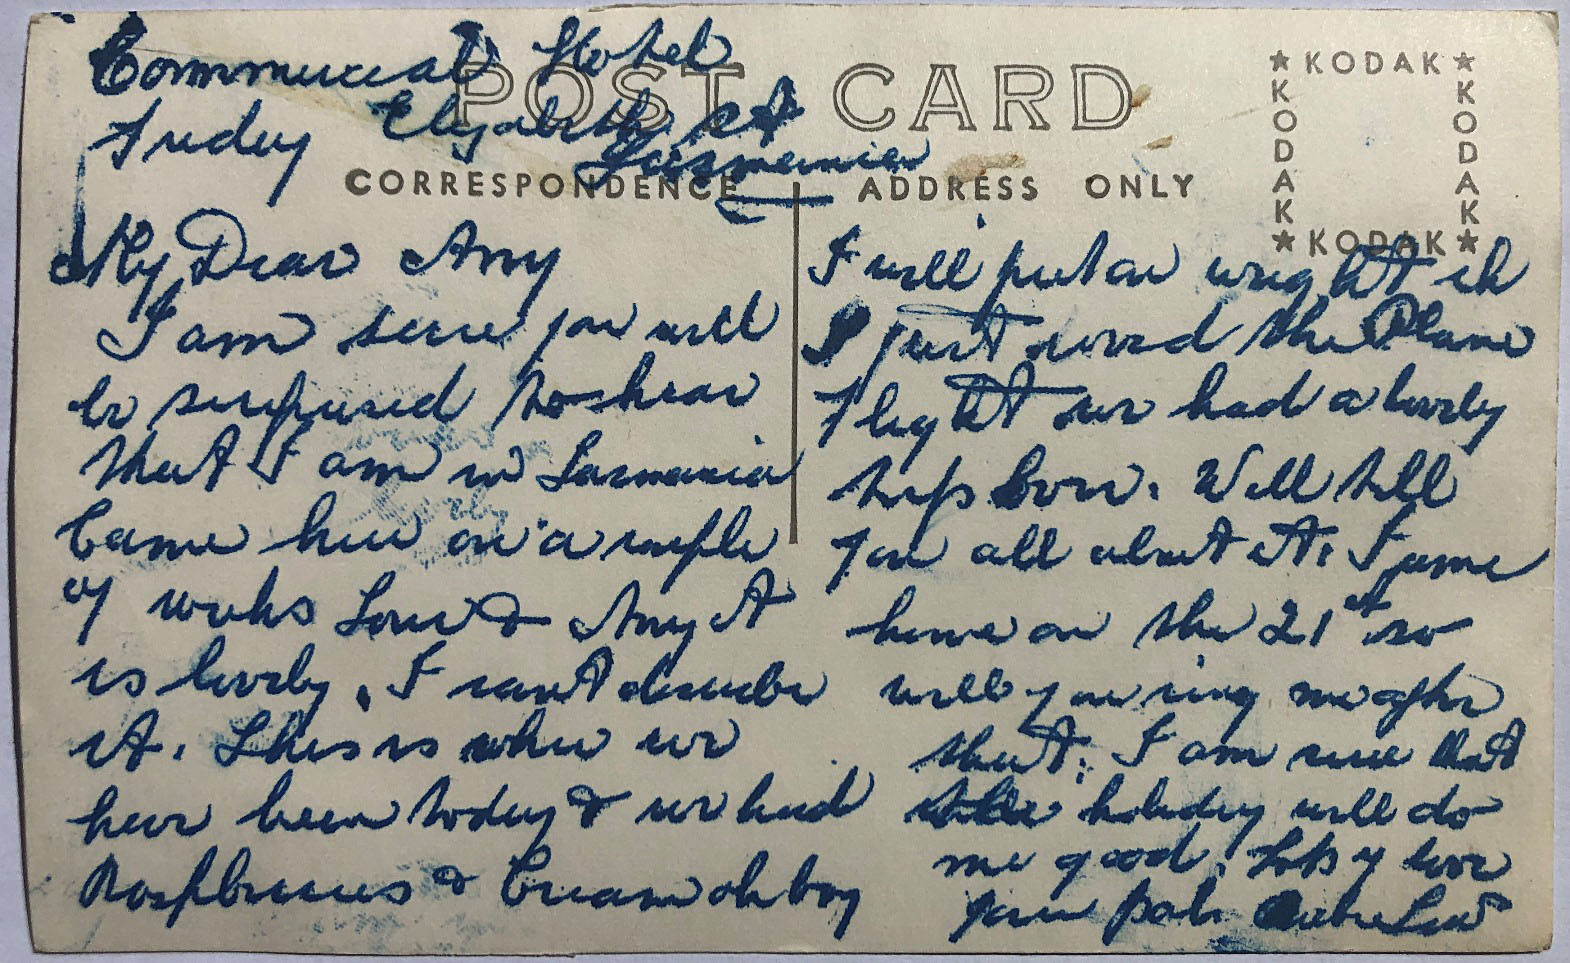 Commercial Hotel
Friday Elizabeth St
Tasmania
POST CARD
CORRESPONDENCE ADDRESS ONLY
★KODAK★
KODAK
KODAK
★KODAK★
My Dear Amy
I am sure you will
be surprised to hear
that I am in Tasmania
Came here on a couple
of weeks Tour & Amy it
is lovely. I cant describe
it. This is where we
have been today & we had
Raspberries & Cream oh boy
I will put on weight eh
I just loved the Plane
flight we had a lovely
trip over. Will tell
you all about it. I come
home on the 21st so
will you ring me after
that. I am sure that
the holiday will do
me good. Lots of love
your pal